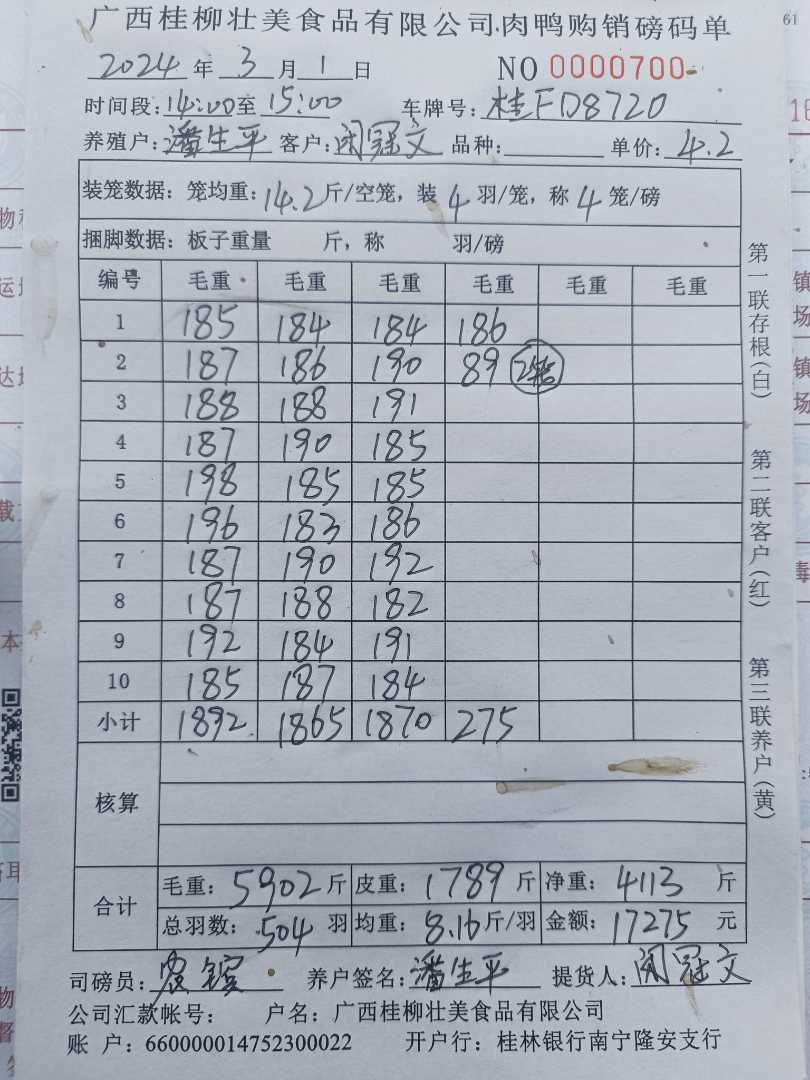 广西桂柳壮美食品有限公司肉鸭购销磅码单
2024年3月1日 NO 0000700
时间段:14:00至15:00 车牌号:桂FD8720
养殖户:潘生平 客户:闭冠文 品种: 单价:4.2
装笼数据:笼均重:14.2斤/空笼,装4羽/笼,称4笼/磅
捆脚数据:板子重量 斤,称 羽/磅
编号 毛重 毛重 毛重 毛重 毛重 毛重
1 185 184 184 186
2 187 186 190 89 2笼
3 188 188 191
4 187 190 185
5 198 185 185
6 196 183 186
7 187 190 192
8 187 188 182
9 192 184 191
10 185 187 184
小计 1892 1865 1870 275
核算
合计
毛重:5902斤 皮重:1789斤 净重:4113斤
总羽数:504羽 均重:8.16斤/羽 金额:17275元
司磅员: 养户签名:潘生平 提货人:闭冠文
公司汇款帐号: 户名:广西桂柳壮美食品有限公司
账 户:660000014752300022 开户行:桂林银行南宁隆安支行
第一联存根(白)
第二联客户(红)
第三联养户(黄)
61